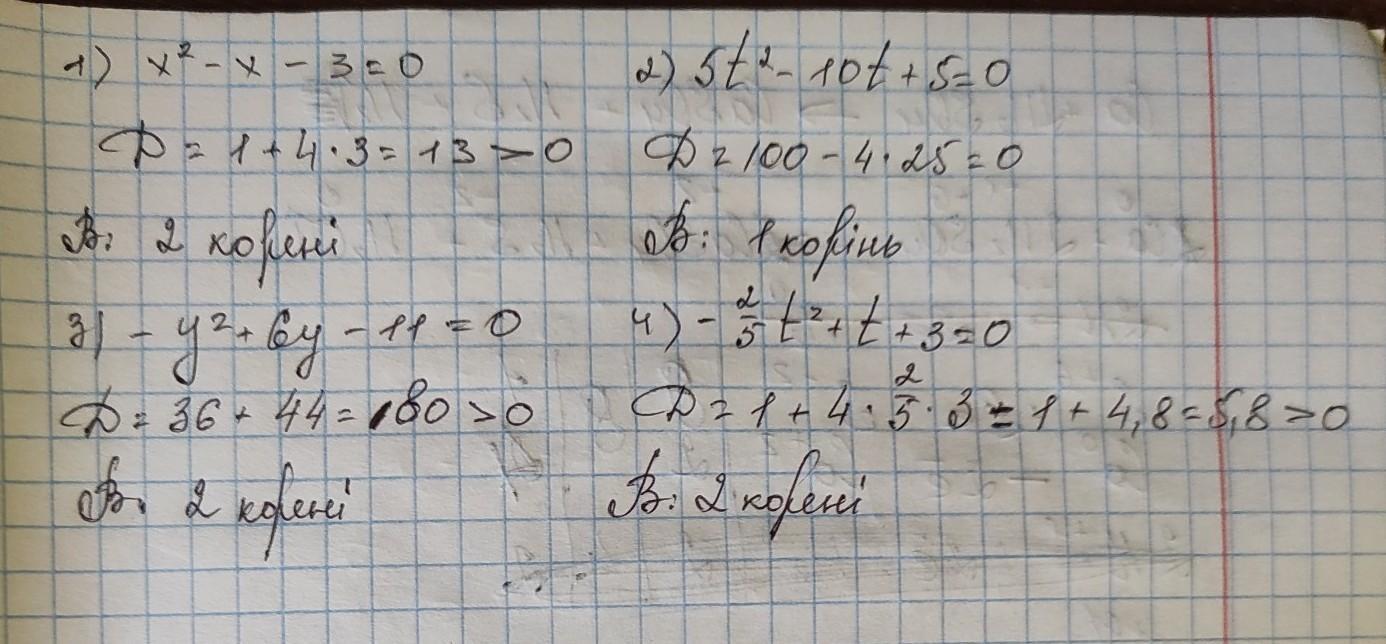 1) x² - x - 3 = 0
D = 1 + 4 · 3 = 13 > 0
В: 2 корені
2) 5t² - 10t + 5 = 0
D = 100 - 4 · 25 = 0
В: 1 корінь
3) - y² + 6y - 11 = 0
D = 36 + 44 = 80 > 0
В: 2 корені
4) - 2/5 t² + t + 3 = 0
D = 1 + 4 · 2/5 · 3 = 1 + 4,8 = 5,8 > 0
В: 2 корені